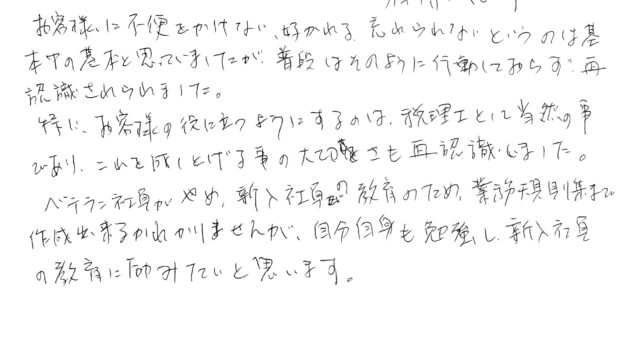 お客様に不便をかけない、好かれる、忘れられないというのは基
本中の基本と思っていましたが、普段はそのように行動しておらず、再
認識させられました。
特に、お客様の役に立つようにするのは、税理士として当然の事
であり、これを成しとげる事の大切さも再認識しました。
ベテラン社員がやめ、新入社員の教育のため、業務規則集まで
作成出来るかわかりませんが、自分自身も勉強し、新入社員
の教育に励みたいと思います。